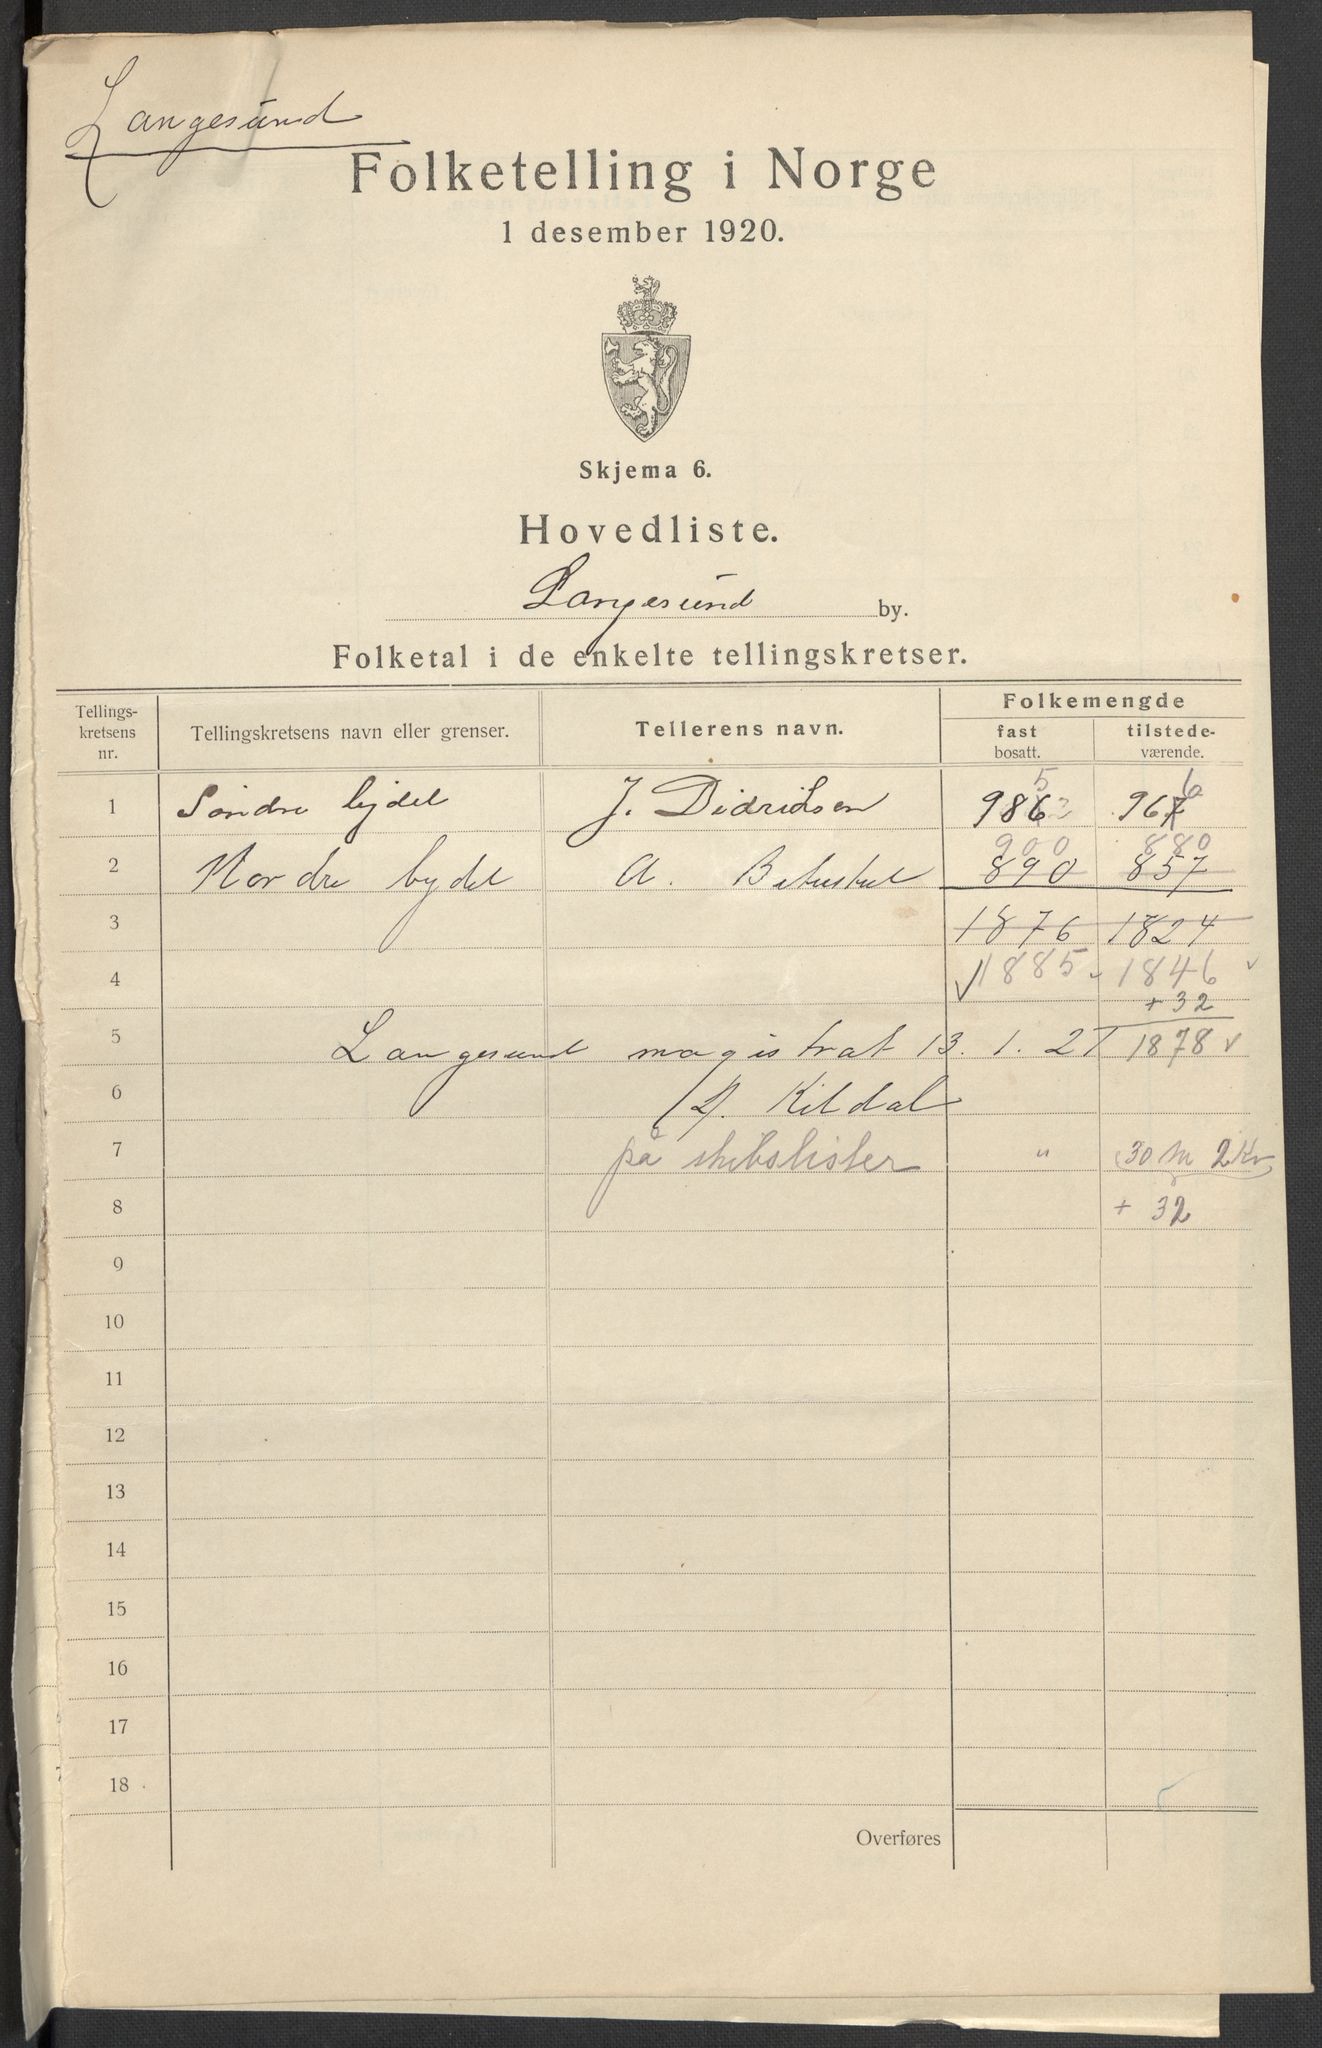 Langesund
Folketelling i Norge
1 desember 1920.
Skjema 6.
Hovedliste.
Langesund by.
Folketal i de enkelte tellingskretser.
Tellings-
kretsens
nr.
Tellingskretsens navn eller grenser.
Tellerens navn.
Folkemengde
fast
bosatt.
tilstede-
værende.
5 6
1 Söndre bydel J. Didriksen 986 967
900 880
2 Nordre bydel A. 890 857
3 1876 1824
4 1885 1846
+ 32
5 Langesund magistrat 13. 1. 21 1878
6 Kildal
7 på skibslister " 30 m 2 Kv
8 + 32
9
10
11
12
13
14
15
16
17
18
Overføres